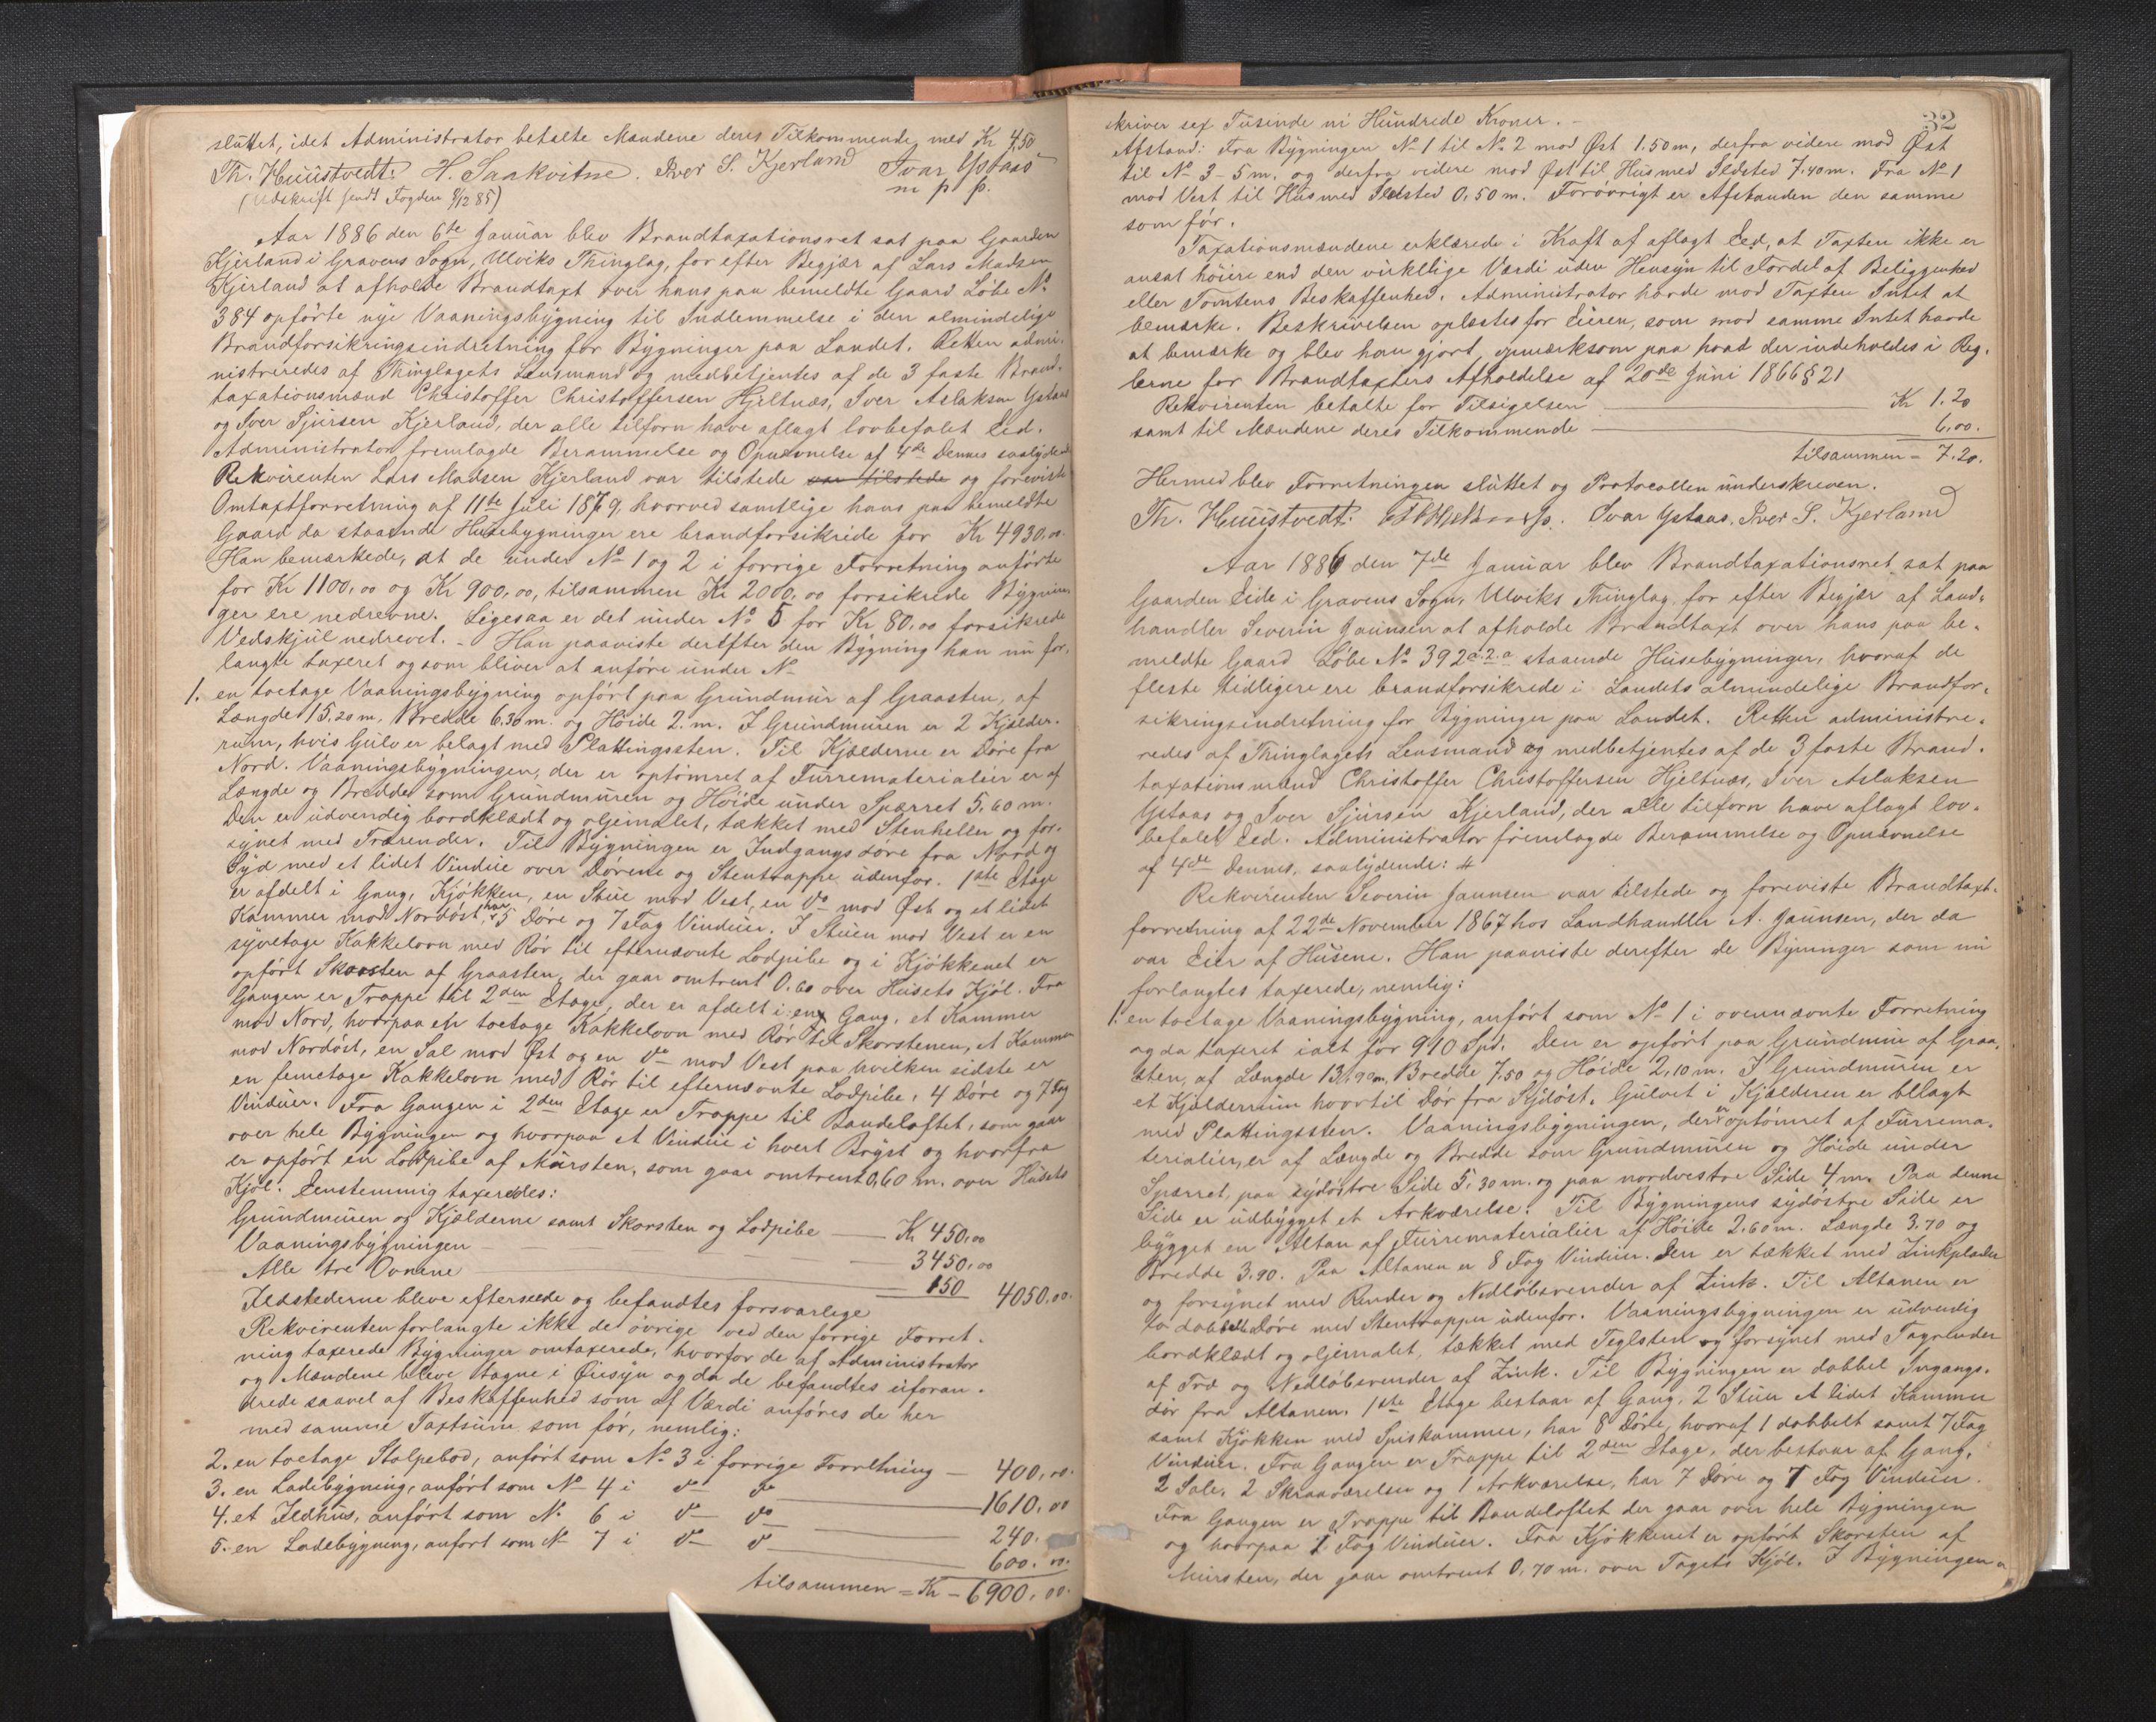 sluttet, idet Administrator betalte Mændene deres Tilkommende med Kr 4,50
Th. Huustvedt. H. Saakvitne. Iver S. Kjerland Ivar Ystaas
m p p.
(Udskrift sendt Fogden 9/12 85)
Aar 1886 den 6te Januar blev Brandtaxationsret sat paa Gaarden
Kjerland i Gravens Sogn, Ulviks Thinglag, for efter Begjær af Lars Madsen
Kjerland at afholde Brandtaxt over hans paa bemeldte Gaard Löbe No
384 opförte nye Vaaningsbygning til Indlemmelse i den almindelige
Brandforsikringsindretning for Bygninger paa Landet. Retten admi-
nistreredes af Thinglagets Lensmand og medbetjentes af de 3 faste Brand-
taxationsmænd Christoffer Christoffersen Hjeltnæs, Iver Aslaksen Ystaas
og Iver Sjursen Kjerland, der alle tilforn have aflagt lovbefalet Eed.
Administrator fremlagde Berammelse og Opnævnelse af 4de Dennes saalydende
Rekvirenten Lars Madsen Kjerland var tilstede var tilstede og foreviste
Omtaxtforretning af 11te Juli 1879, hvorved samtlige hans paa bemeldte
Gaard da staaende Husebygninger ere brandforsikrede for Kr 4930,00.
Han bemærkede, at de under No 1 og 2 i forrige Forretning anförte
for Kr 1100,00 og Kr 900,00, tilsammen Kr 2000,00 forsikrede Bygnin-
ger ere nedrevne. Ligesaa er det under No 5 for Kr 80,00 forsikrede
Vedskjul nedrevet. - Han paaviste derefter den Bygning han nu for-
langte taxeret og som bliver at anföre under No
1. en toetage Vaaningsbygning opfört paa Grundmur af Graasten, af
Længde 15.20 m, Bredde 6.30 m. og Höide 2. m. I Grundmuren er 2 Kjælder-
rum, hvis Gulv er belagt med Plattingssten. Til Kjælderne er Döre fra
Nord. Vaaningsbygningen, der er optömret af Furrematerialier er af
Længde og Bredde som Grundmuren og Höide under Spærret 5,60 m.
Den er udvendig bordklædt og oljemalet, tækket med Stenheller og for-
synet med Trærender. Til Bygningen er Indgangsdöre fra Nord og
Syd med et lidet Vindue over Dörene og Stentrappe udenfor. 1ste Etage
er afdelt i Gang, Kjökken, en Stue mod Vest, en do mod Öst og et lidet
Kammer mod Nordöst, har 5 Döre og 7 Fag Vinduer. I Stuen mod Vest er en
syvetage Kakkelovn med Rör til efternævnte Lodpibe og i Kjökkenet er
opfört Skorsten af Graasten, der gaar omtrent 0.60 over Husets Kjöl. Fra
Gangen er Trappe til 2den Etage, der er afdelt i: en Gang, et Kammer
mod Nord, hvorpaa en toetage Kakkelovn med Rör til Skorstenen, et Kammer
mod Nordöst, en Sal mod Öst og en do mod Vest paa hvilken sidste er
en femetage Kakkelovn med Rör til efternævnte Lodpibe, 4 Döre og 7 Fag
Vinduer. Fra Gangen i 2den Etage er Trappe til Bandeloftet, som gaar
over hele Bygningen og hvorpaa et Vindue i hvert Bryst og hvorfra
er opfört en Lodpibe af Mursten, som gaar omtrent 0,60 m. over Husets
Kjöl. Eenstemmig taxeredes:
Grundmuren og Kjælderne samt Skorsten og Lodpibe — Kr 450,00
Vaaningsbygningen — 3450,00
Alle tre Ovnene — 150 4050,00.
Ildstederne bleve efterseede og befandtes forsvarlige
Rekvirenten forlangte ikke de övrige ved den forrige Forret-
ning taxerede Bygninger omtaxerede, hvorfor de af Administrator
og Mændene bleve tagne i Öiesyn og da de befandtes uforan-
drede saavel af Beskaffenhed som af Værdi anföres de her
med samme Taxtsum som för, nemlig:
2. en toetage Stolpebod, anfört som No 3 i forrige Forretning — 400,00.
3. en Ladebygning, anfört som No 4 i do do — 1610,00
4. et Ildhus, anfört som No 6 i do do — 240.
5. en Ladebygning, anfört som No 7 i do do — 600.00.
tilsammen = Kr - 6900,00.
32
skriver sex Tusinde ni Hundrede Kroner. -
Afstand: Fra Bygningen No 1 til No 2 mod Öst 1.50 m, derfra videre mod Öst
til No 3 - 5 m. og derfra videre mod Öst til Hus med Ildsted 7.40 m. Fra No 1
mod Vest til Hus med Ildsted 0,50 m. Forövrigt er Afstanden den samme
som för.
Taxationsmændene erklærede i Kraft af aflagt Eed, at Taxten ikke er
ansat höiere end den virkelige Værdi uden Hensyn til Fordel af Beliggenhed
eller Tomtens Beskaffenhed. Administrator havde mod Taxten Intet at
bemærke. Beskrivelsen oplæstes for Eieren, som mod samme Intet havde
at bemærke og blev han gjort opmærksom paa hvad der indeholdes i Reg-
lerne for Brandtaxters Afholdelse af 20de Juni 1866 § 21
Rekvirenten betalte for Tilsigelsen — Kr 1.20
samt til Mændene deres Tilkommende — 6,00.
tilsammen = 7.20.
Hermed blev Forretningen sluttet og Protocollen underskreven.
Th. Huustvedt. Ivar Ystaas. Iver S. Kjerland
Aar 1886 den 7de Januar blev Brandtaxationsret sat paa
Gaarden Eide i Gravens Sogn, Ulviks Thinglag, for efter Begjær af Land-
handler Severin Jaunsen at afholde Brandtaxt over hans paa be-
meldte Gaard Löbe No 392 a.2.a staaende Husebygninger, hvoraf de
fleste tidligere ere brandforsikrede i Landets almindelige Brandfor-
sikringsindretning for Bygninger paa Landet. Retten administre-
redes af Thinglagets Lensmand og medbetjentes af de 3 faste Brand-
taxationsmænd Christoffer Christoffersen Hjeltnæs, Iver Aslaksen
Ystaas og Iver Sjursen Kjerland, der alle tilforn have aflagt lov-
befalet Eed. Administrator fremlagde Berammelse og Opnævnelse
af 4de Dennes, saalydende: #
Rekvirenten Severin Jaunsen var tilstede og foreviste Brandtaxt-
forretning af 22de November 1867 hos Landhandler A. Jaunsen, der da
var Eier af Husene. Han paaviste derefter de Bygninger som nu
forlangtes taxerede, nemlig:
1. en toetage Vaaningsbygning, anfört som No 1 i ovennævnte Forretning
og da taxeret ialt for 910 Spd. Den er opfört paa Grundmur af Graa-
sten, af Længde 13,90 m, Bredde 7,50 og Höide 2,10 m. I Grundmuren er
et Kjælderrum hvortil Dör fra Sydöst. Gulvet i Kjælderen er bllagt
med Plattingssten. Vaaningsbygningen, der er optömret af Furrema-
terialier, er af Længde og Bredde som Grundmuren og Höide under
Spærret, paa sydöstre Side 5,30 m. og paa nordvestre Side 4 m. Paa denne
Side er udbygget et Arkværelse. Til Bygningens sydöstre Side er
bygget en Altan af Furrematerialier af Höide 2.60 m. Længde 3.70 og
Bredde 3.90. Paa Altanen er 8 Fag Vinduer. Den er tækket med Zinkplader
og forsynet med Render og Nedlöbsrender af Zink. Til Altanen er
to dobbelte Döre med Stentrapper udenfor. Vaaningsbygningen er udvendig
bordklædt og oljemalet, tækket med Teglsten og forsynet med Tagrender
af Træ og Nedlöbsrender af Zink. Til Bygningen er dobbel Ingangs-
dör fra Altanen. 1ste Etage bestaar af Gang, 2 Stuer et lidet Kammer
samt Kjökken med Spiskammer, har 8 Döre, hvoraf 1 dobbelt samt 7 Fag
Vinduer. Fra Gangen er Trappe til 2den Etage, der bestaar af Gang,
2 Sale, 2 Skraaværelser og 1 Arkværelse, har 7 Döre og 7 Fag Vinduer.
Fra Gangen er Trappe til Bandeloftet der gaar over hele Bygningen
og hvorpaa 1 Fag Vinduer. Fra Kjökkenet er opfört Skorsten af
Mursten, der gaar omtrent 0,70 m. over Tagets Kjöl. I Bygningen er